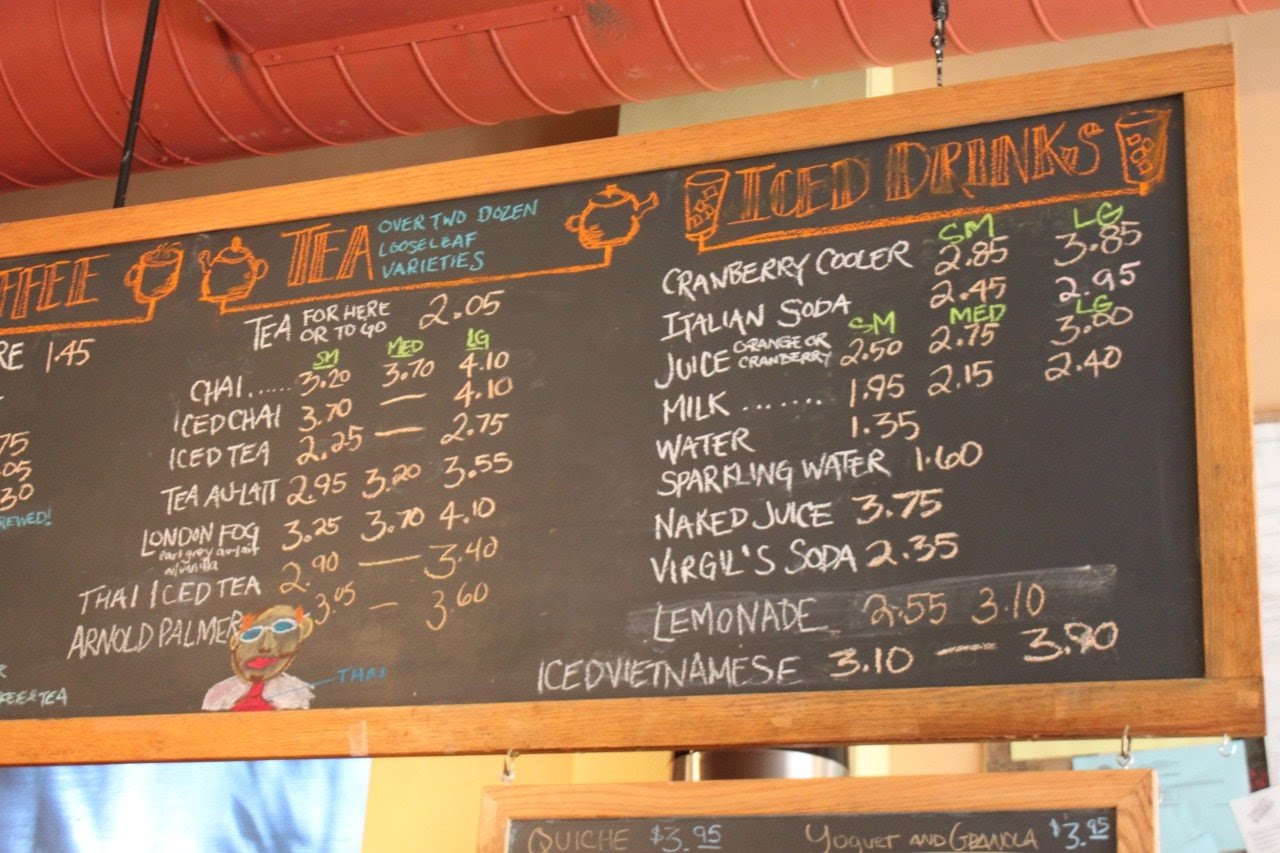 FFEE
RE 1.45
75
.05
.30
REWED!
FEE & TEA
TEA OVER TWO DOZEN
LOOSELEAF
VARIETIES
TEA FOR HERE OR TO GO 2.05
SM MED LG
CHAI ...... 3.20 3.70 4.10
ICED CHAI 3.70 — 4.10
ICED TEA 2.25 — 2.75
TEA AU-LAIT 2.95 3.20 3.55
LONDON FOG 3.25 3.70 4.10
earl grey au-lait
w/vanilla
THAI ICED TEA 2.90 — 3.40
ARNOLD PALMER 3.05 — 3.60
THAI
ICED DRINKS
SM LG
CRANBERRY COOLER 2.85 3.85
ITALIAN SODA 2.45 2.95
SM MED LG
JUICE ORANGE OR CRANBERRY 2.50 2.75 3.00
MILK ....... 1.95 2.15 2.40
WATER 1.35
SPARKLING WATER 1.60
NAKED JUICE 3.75
VIRGIL'S SODA 2.35
LEMONADE 2.55 3.10
ICED VIETNAMESE 3.10 — 3.90
QUICHE $3.95 YOGURT AND GRANOLA $3.95